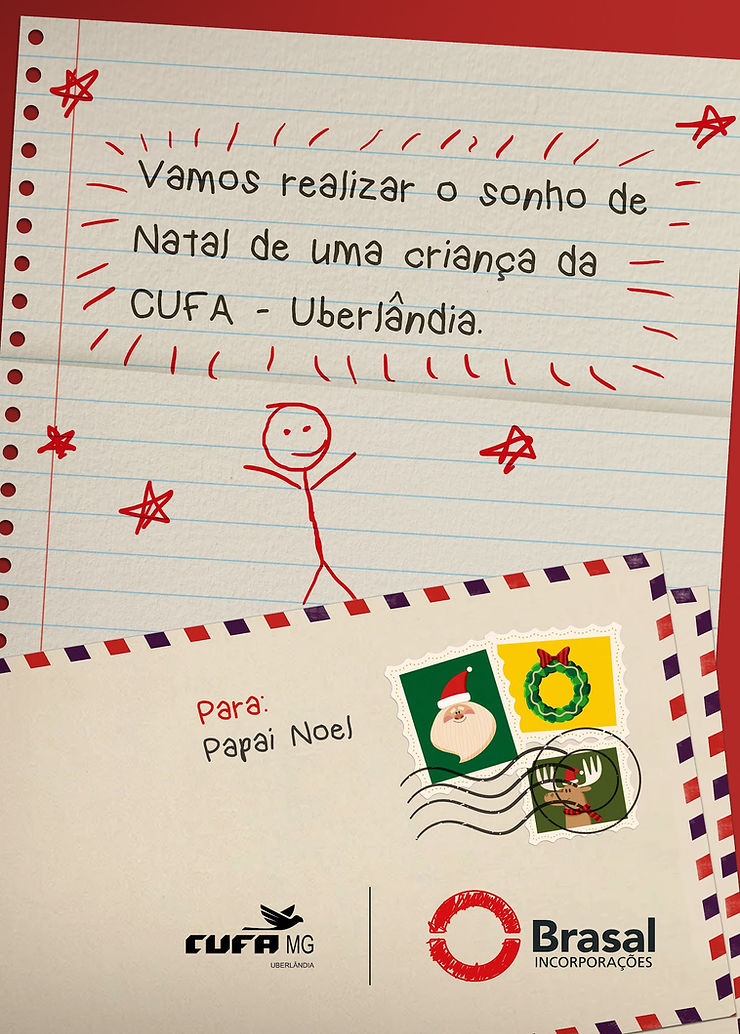 Vamos realizar o sonho de
Natal de uma criança da
CUFA - Uberlândia.
Para:
Papai Noel
CUFA MG
UBERLÂNDIA
Brasal
INCORPORAÇÕES